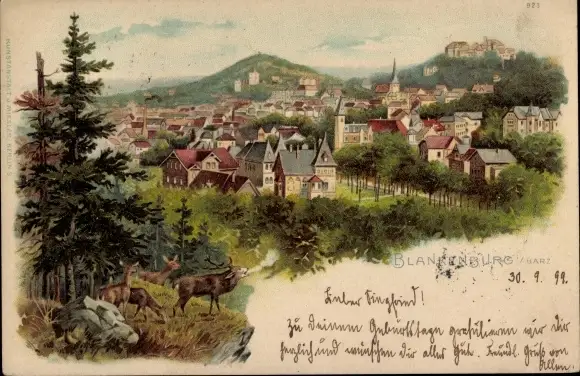 921
BLANKENBURG /HARZ
30. 9. 99.
Lieber Siegfried!
Zu deinem Geburtstage gratulieren wir dir
herzlich und wünschen dir alles Gute. Freundl. Gruß von
Allen.